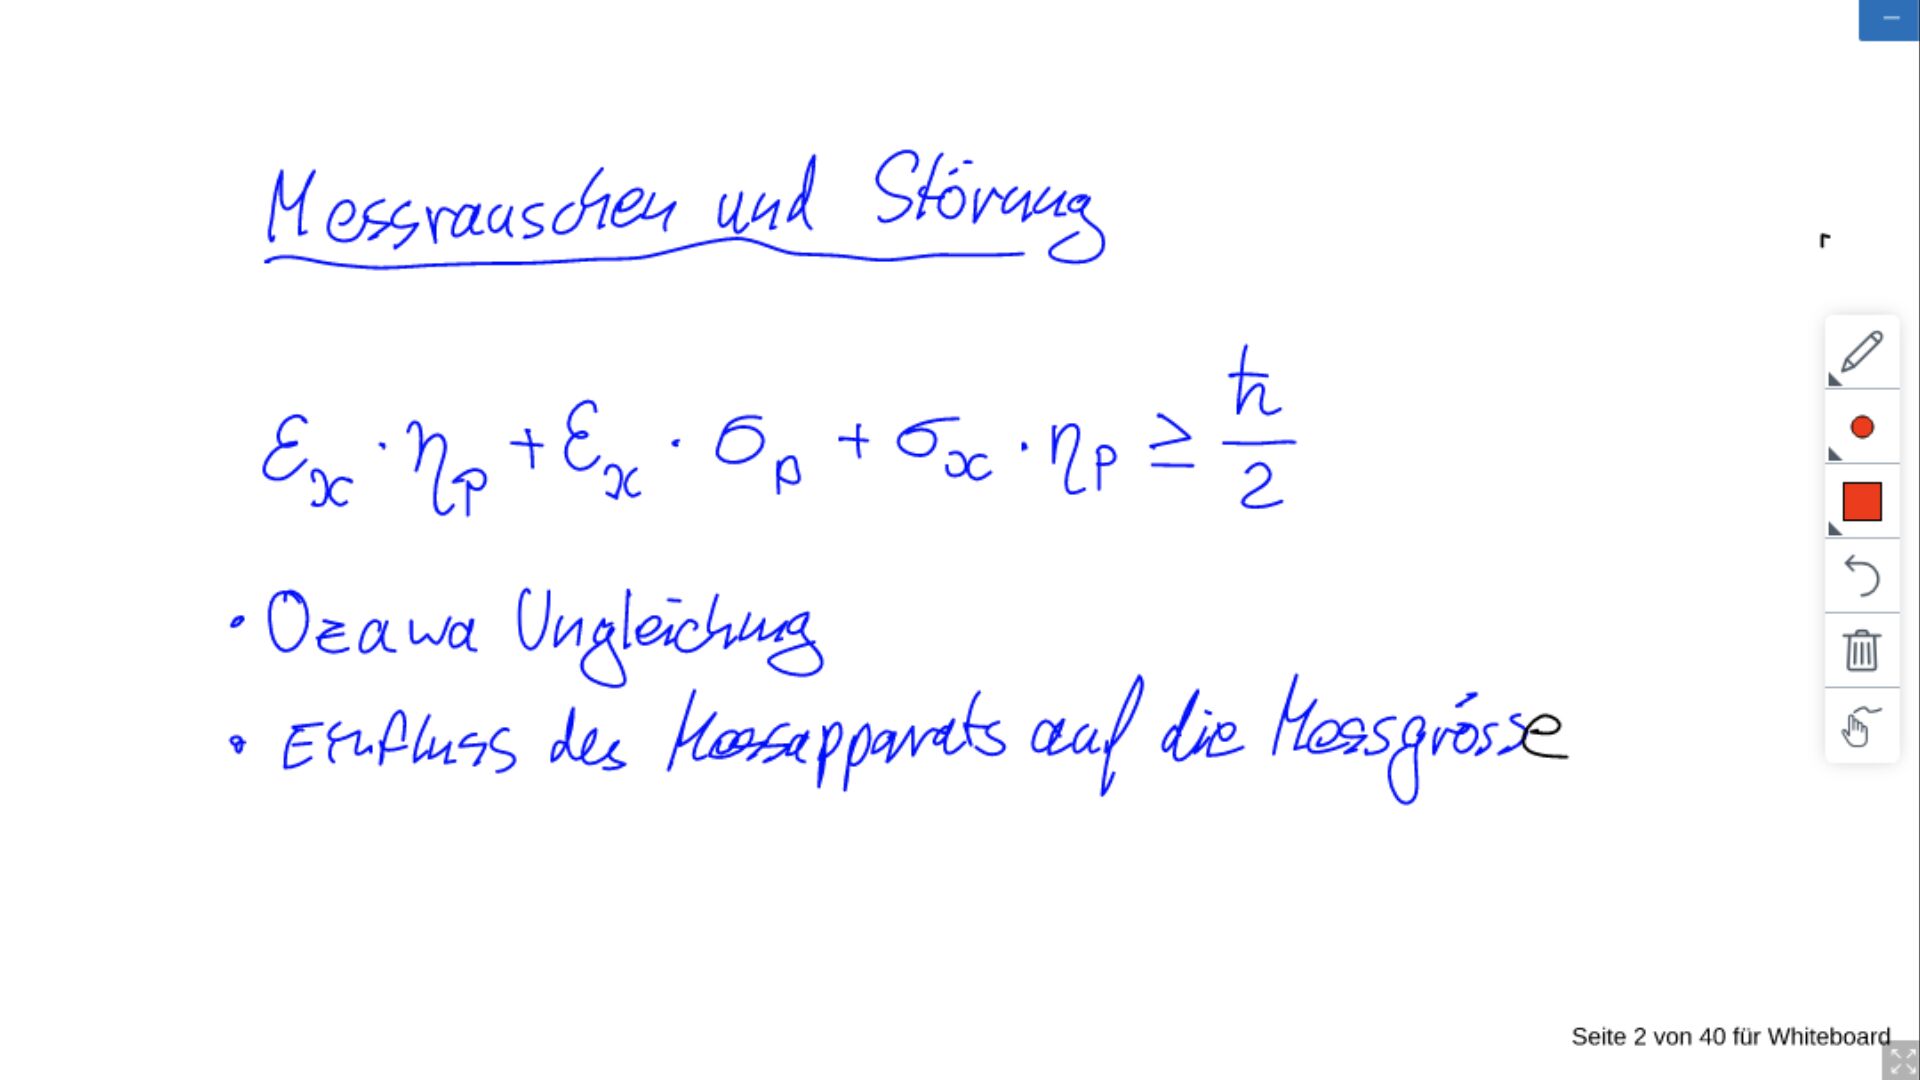 Messrauschen und Störung
εₓ · ηₚ + εₓ · σₚ + σₓ · ηₚ ≥ ℏ/2
• Ozawa Ungleichung
• Einfluss des Messapparats auf die Messgrösse
Seite 2 von 40 für Whiteboard